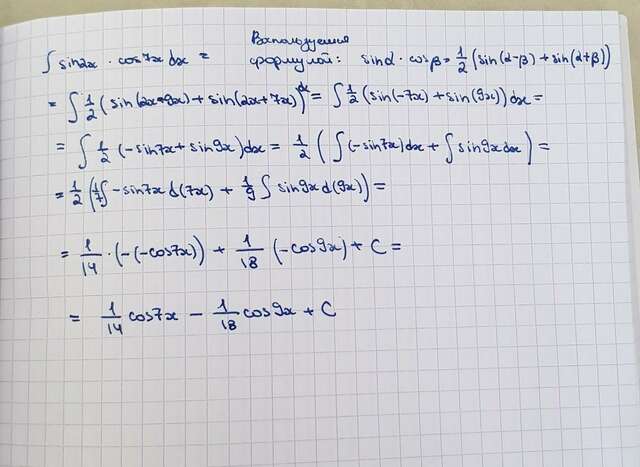 Воспользуемся
∫ sin2x · cos7x dx = формулой: sinα · cosβ = 1/2 (sin(α-β) + sin(α+β))
= ∫ 1/2 (sin(2x-9x) + sin(2x+7x)) dx = ∫ 1/2 (sin(-7x) + sin(9x)) dx =
= ∫ 1/2 (-sin7x + sin9x) dx = 1/2 ( ∫ (-sin7x) dx + ∫ sin9x dx ) =
= 1/2 ( 1/7 ∫ -sin7x d(7x) + 1/9 ∫ sin9x d(9x) ) =
= 1/14 · (-(-cos7x)) + 1/18 (-cos9x) + C =
= 1/14 cos7x - 1/18 cos9x + C